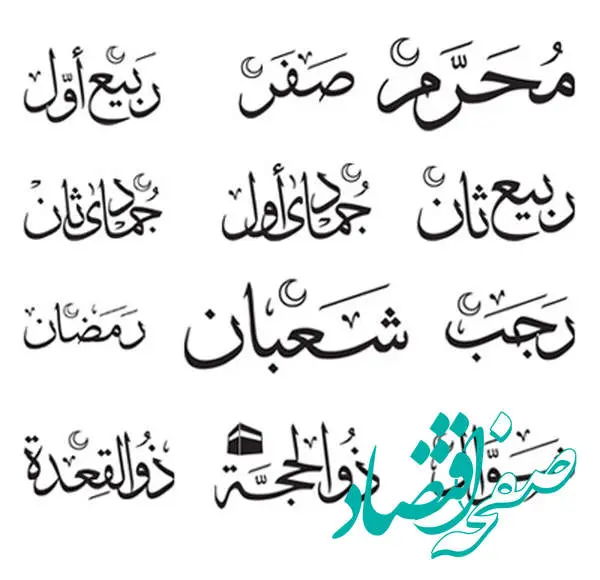 مُحَرَّم صَفَر رَبيع أوّل
ربيع ثان جُمادى أول جُمادى ثان
رَجَب شَعبان رَمَضان
ذُوالحجَّة ذُوالقِعدة
صفحه اقتصاد